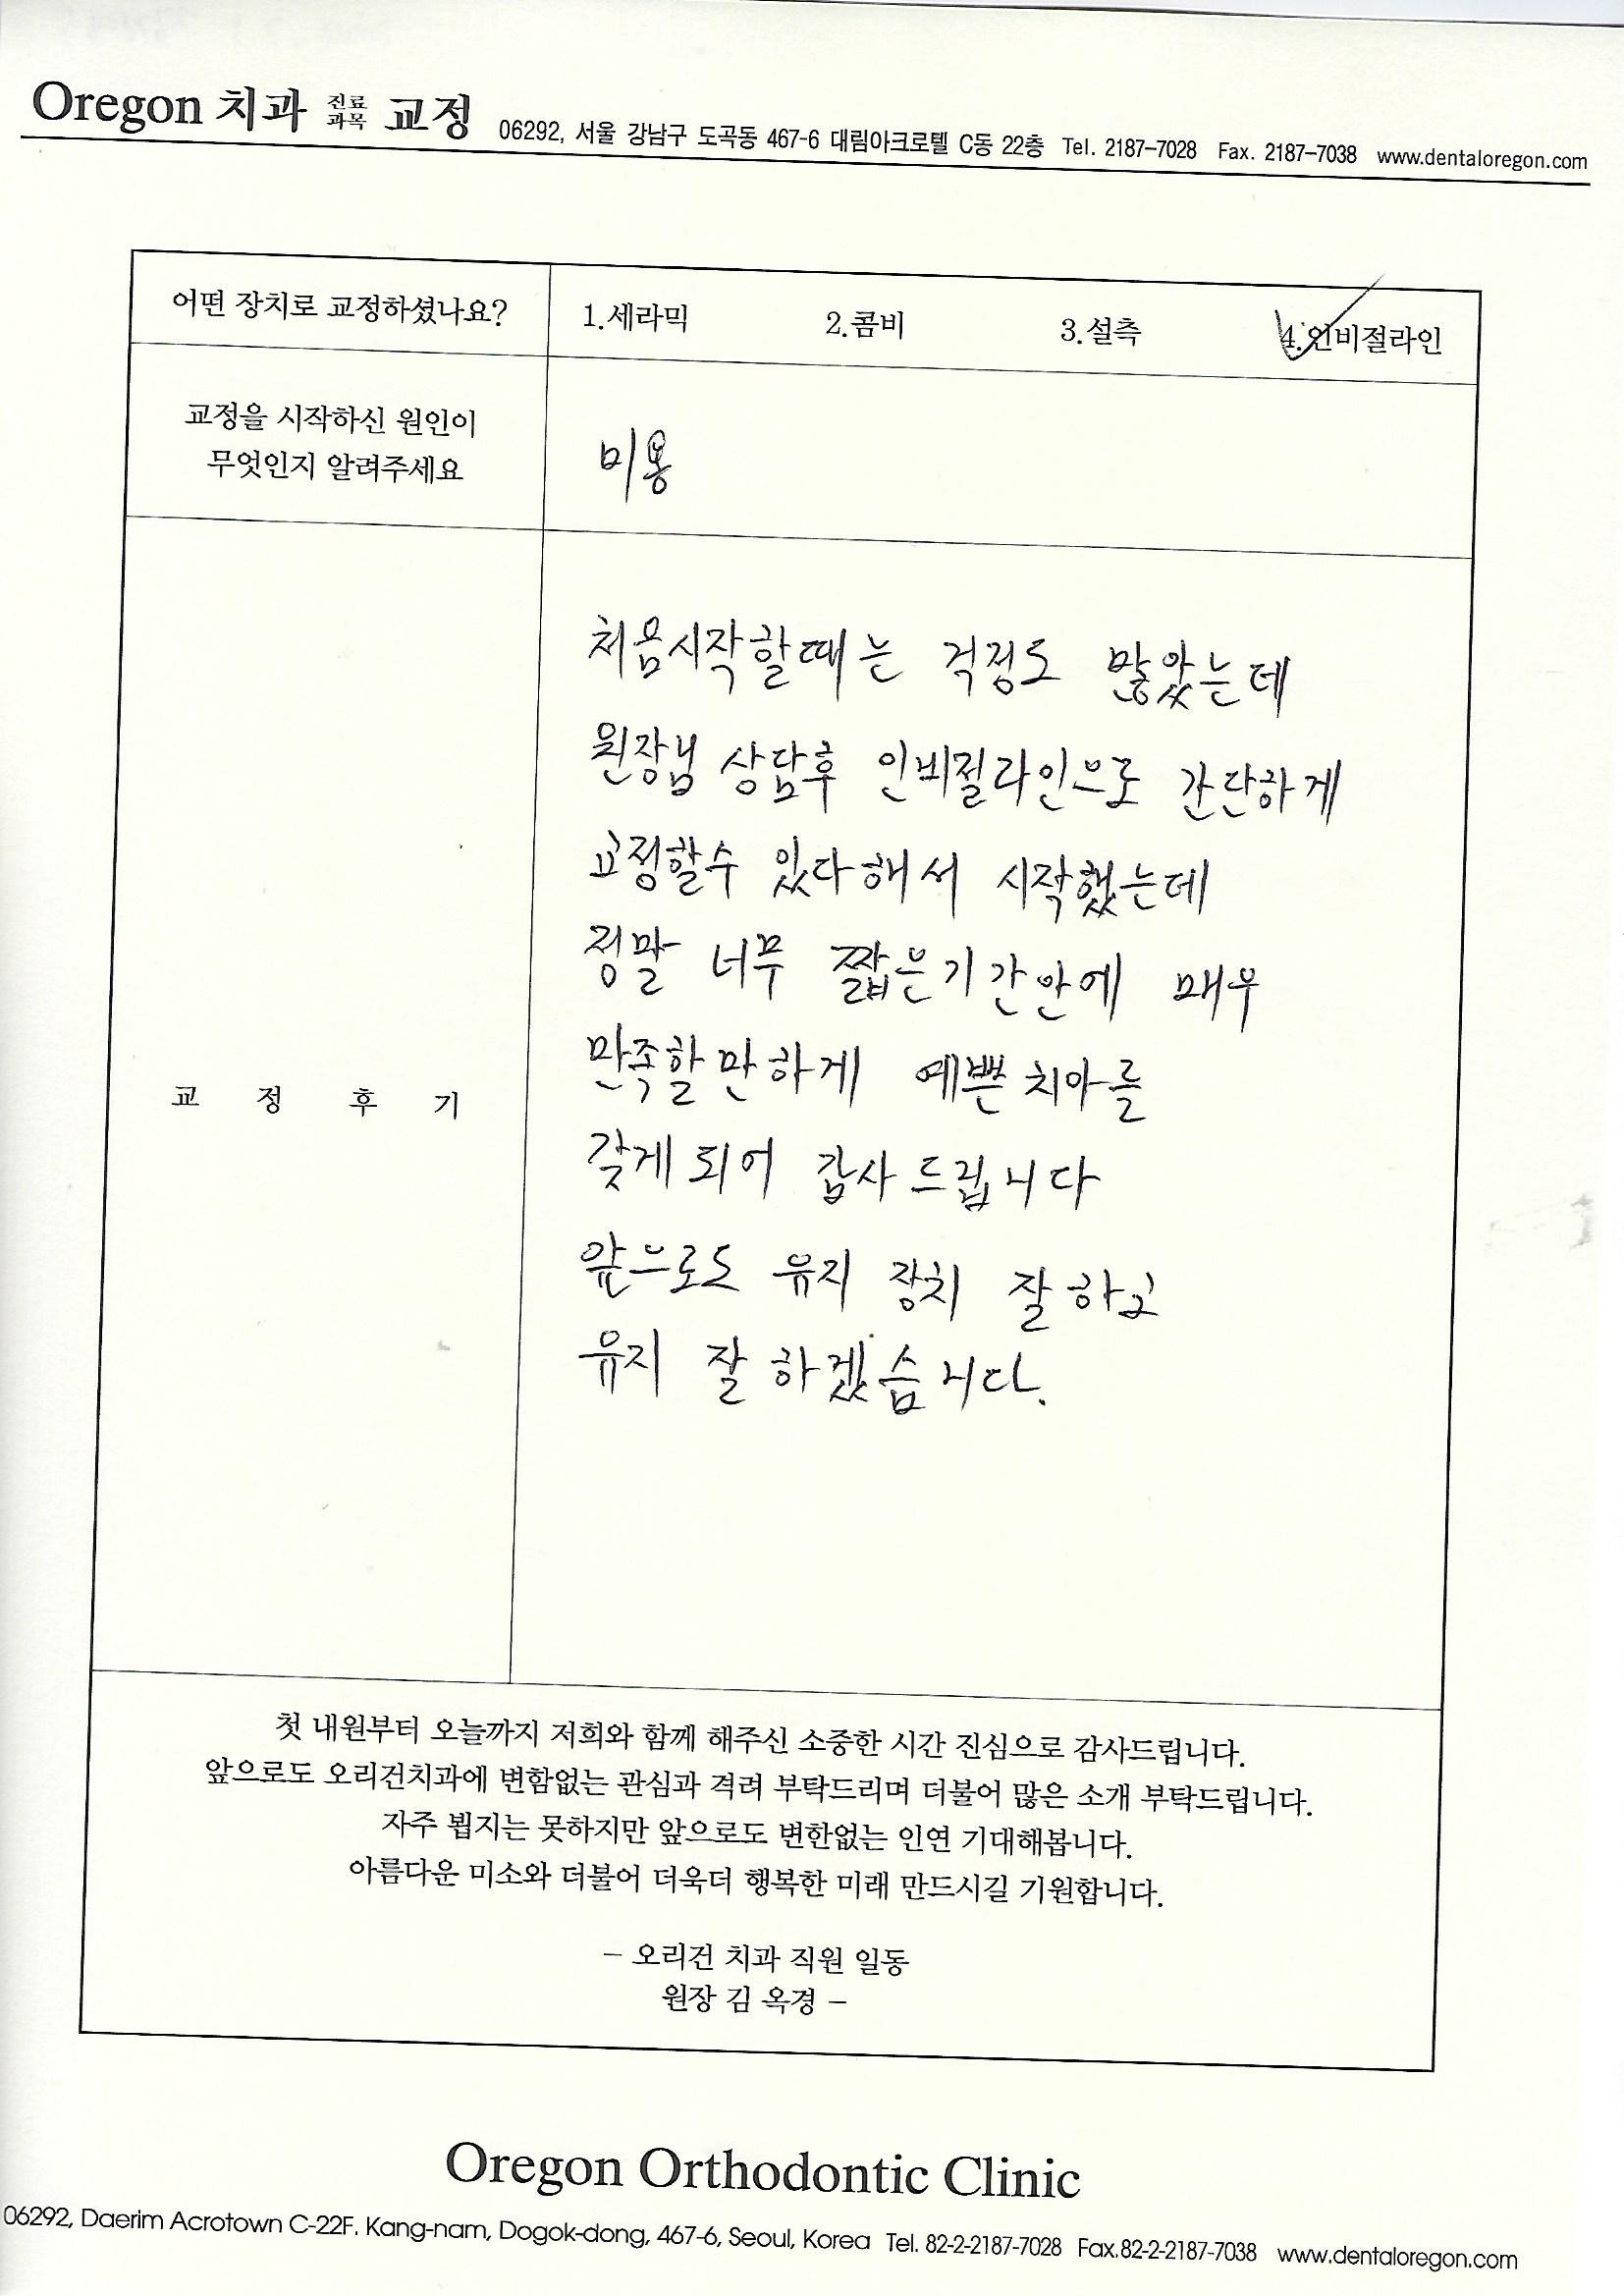 Oregon 치과 진료과목 교정 06292, 서울 강남구 도곡동 467-6 대림아크로텔 C동 22층 Tel. 2187-7028 Fax. 2187-7038 www.dentaloregon.com
어떤 장치로 교정하셨나요? 1.세라믹 2.콤비 3.설측 4.인비절라인
교정을 시작하신 원인이
무엇인지 알려주세요
미용
교 정 후 기
처음시작할때는 걱정도 많았는데
원장님 상담후 인비절라인으로 간단하게
교정할수 있다해서 시작했는데
정말 너무 짧은기간안에 매우
만족할만하게 예쁜치아를
갖게되어 감사드립니다
앞으로도 유지 장치 잘하고
유지 잘하겠습니다.
첫 내원부터 오늘까지 저희와 함께 해주신 소중한 시간 진심으로 감사드립니다.
앞으로도 오리건치과에 변함없는 관심과 격려 부탁드리며 더불어 많은 소개 부탁드립니다.
자주 뵙지는 못하지만 앞으로도 변한없는 인연 기대해봅니다.
아름다운 미소와 더불어 더욱더 행복한 미래 만드시길 기원합니다.
- 오리건 치과 직원 일동
원장 김 옥경 -
Oregon Orthodontic Clinic
06292, Daerim Acrotown C-22F. Kang-nam, Dogok-dong, 467-6, Seoul, Korea Tel. 82-2-2187-7028 Fax.82-2-2187-7038 www.dentaloregon.com